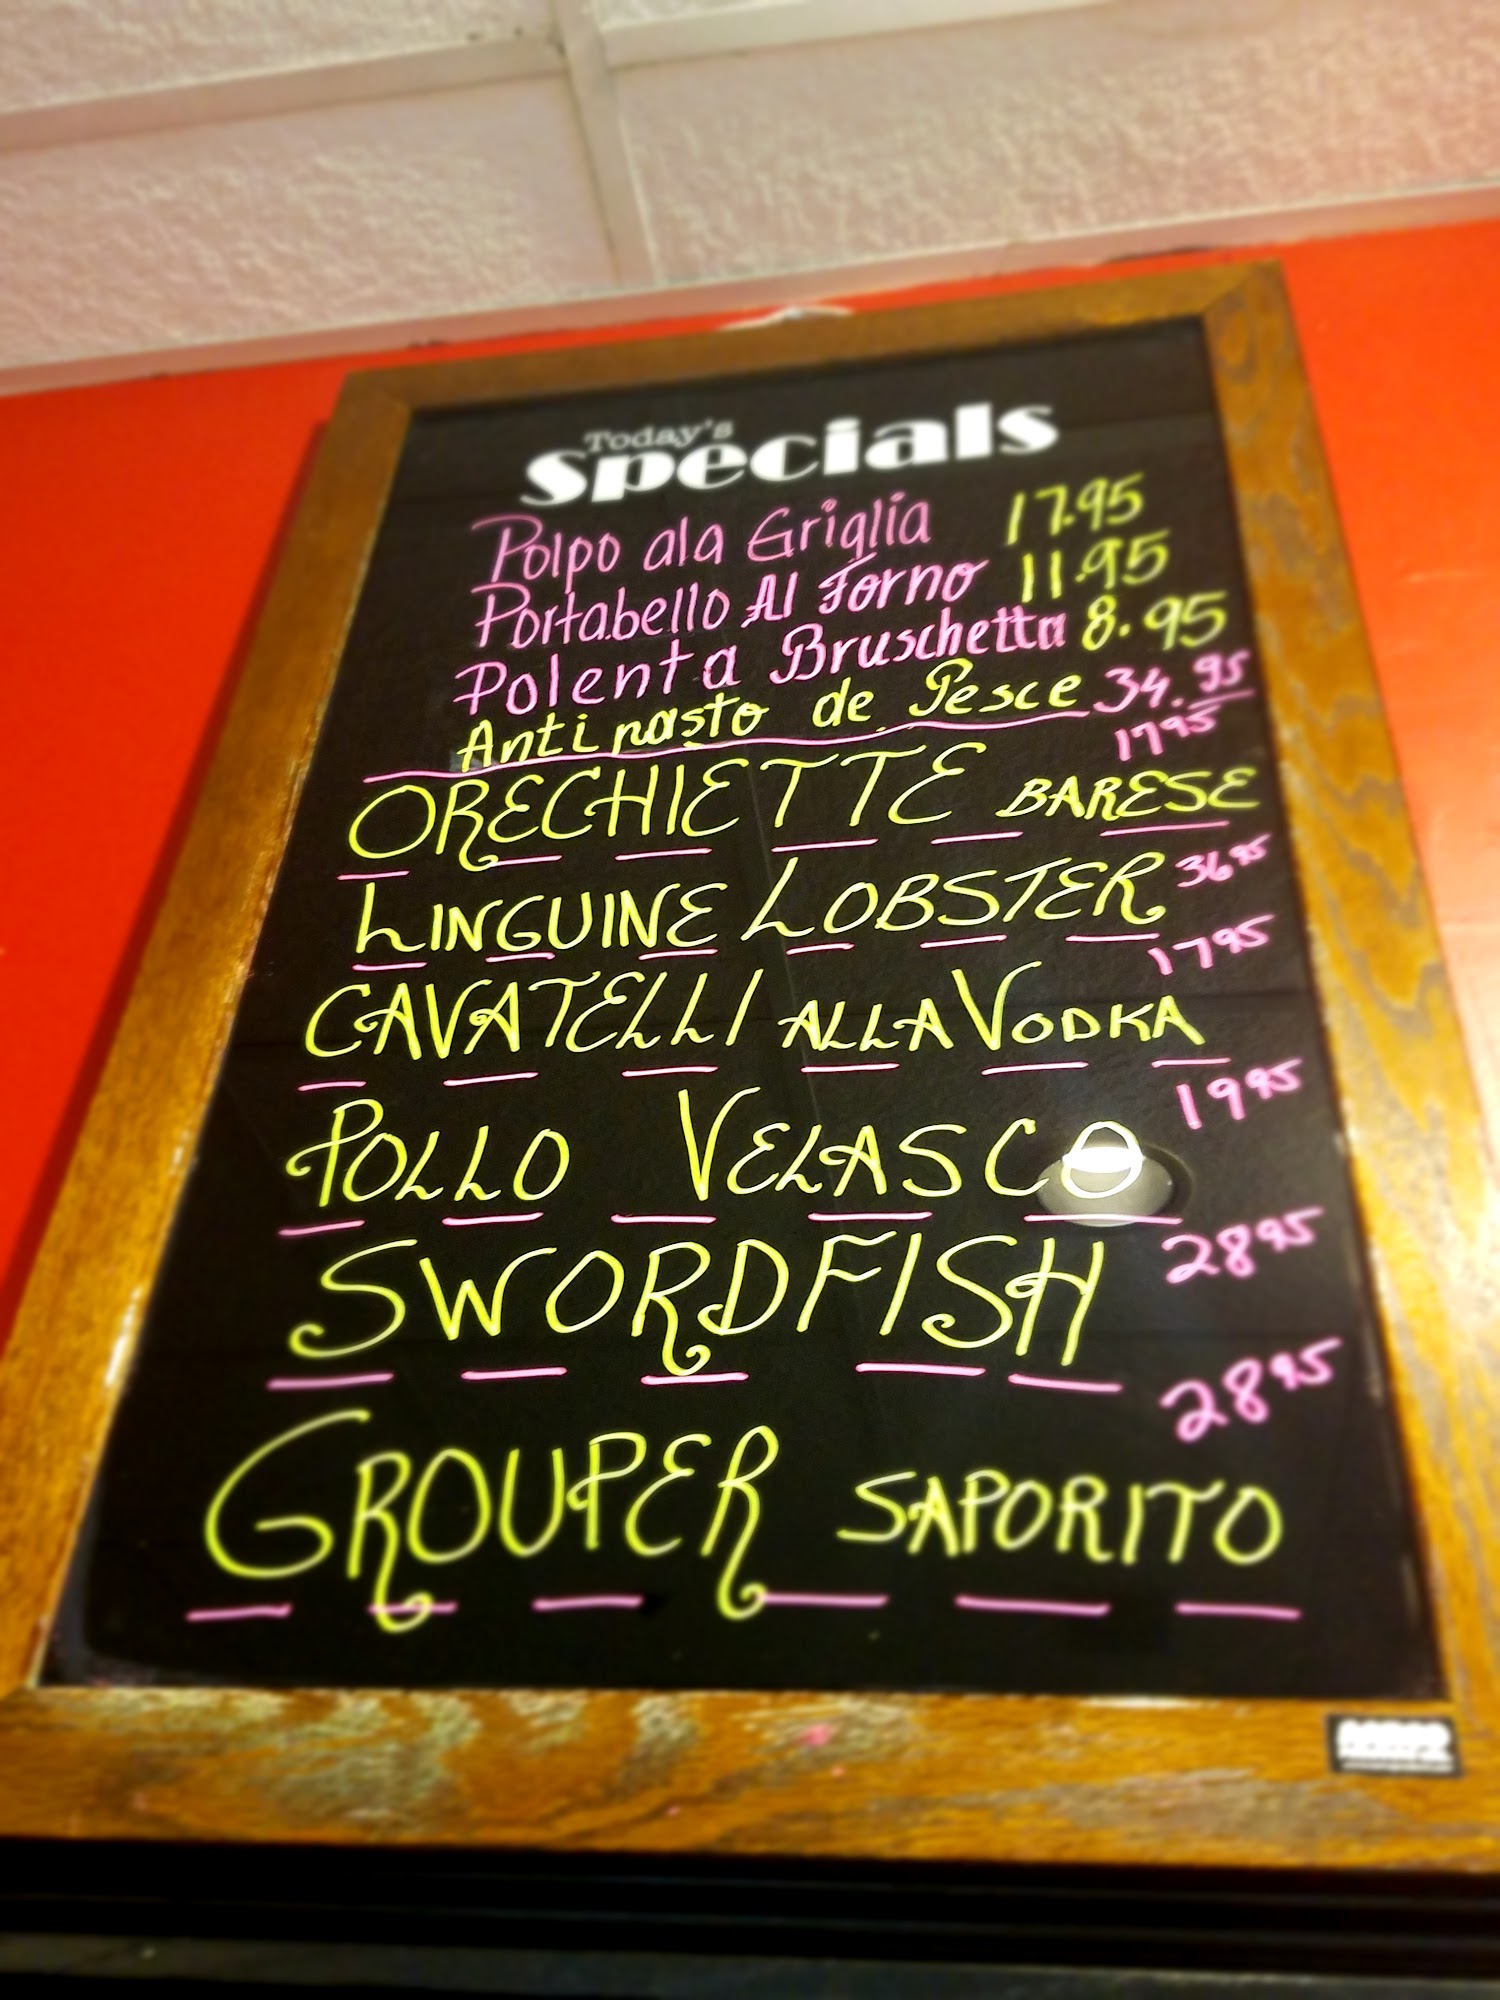 Today's
Specials
Polpo ala Griglia 17.95
Portabello Al Forno 11.95
Polenta Bruschetta 8.95
Antipasto de Pesce 34.95
17 95
ORECHIETTE BARESE
LINGUINE LOBSTER 36 95
17 95
CAVATELLI ALLA VODKA
19 95
POLLO VELASCO
SWORDFISH 28 95
28 95
GROUPER SAPORITO